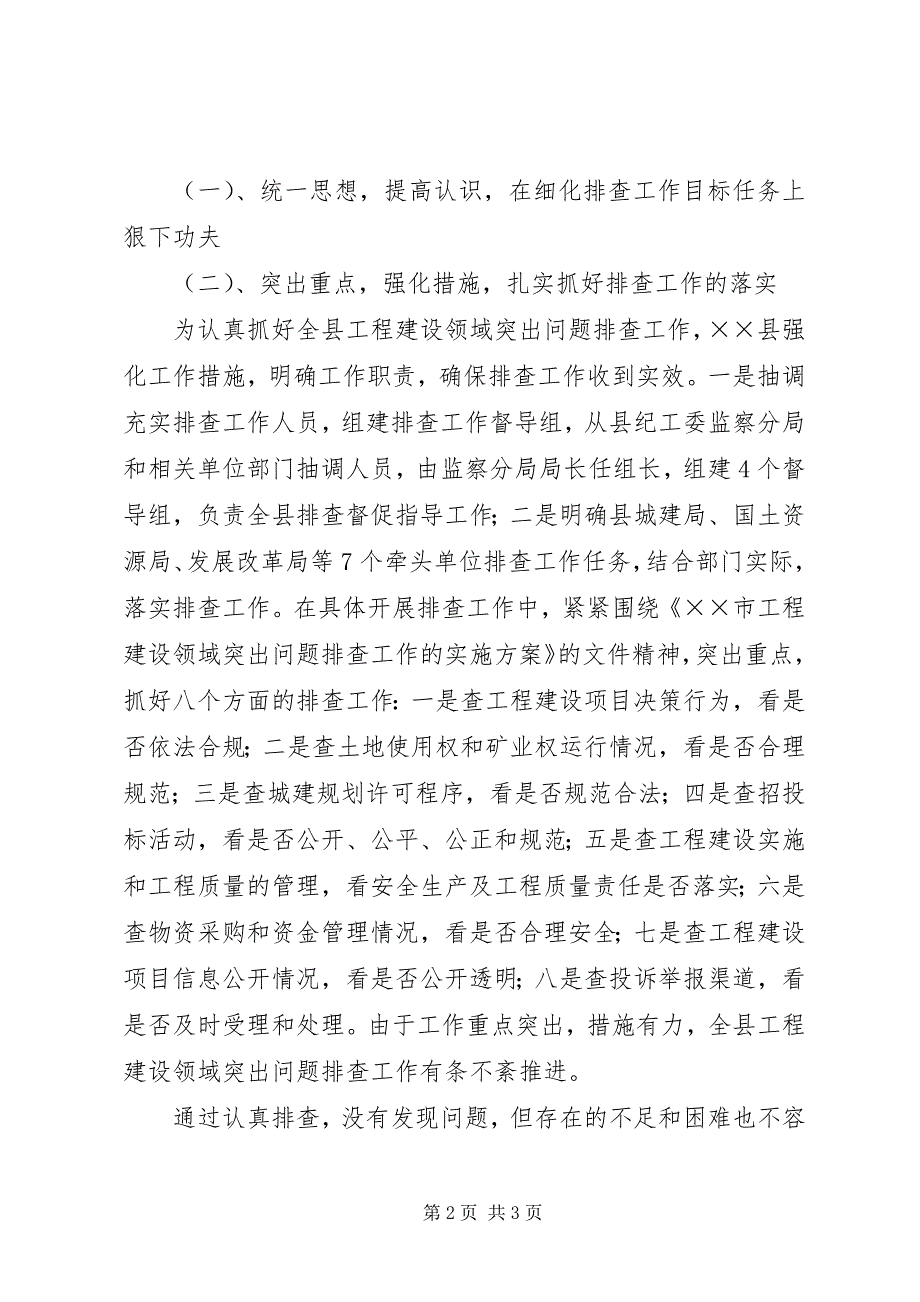 （一）、统一思想，提高认识，在细化排查工作目标任务上
狠下功夫
（二）、突出重点，强化措施，扎实抓好排查工作的落实
为认真抓好全县工程建设领域突出问题排查工作，××县强
化工作措施，明确工作职责，确保排查工作收到实效。一是抽调
充实排查工作人员，组建排查工作督导组，从县纪工委监察分局
和相关单位部门抽调人员，由监察分局局长任组长，组建 4 个督
导组，负责全县排查督促指导工作；二是明确县城建局、国土资
源局、发展改革局等 7 个牵头单位排查工作任务，结合部门实际，
落实排查工作。在具体开展排查工作中，紧紧围绕《××市工程
建设领域突出问题排查工作的实施方案》的文件精神，突出重点，
抓好八个方面的排查工作：一是查工程建设项目决策行为，看是
否依法合规；二是查土地使用权和矿业权运行情况，看是否合理
规范；三是查城建规划许可程序，看是否规范合法；四是查招投
标活动，看是否公开、公平、公正和规范；五是查工程建设实施
和工程质量的管理，看安全生产及工程质量责任是否落实；六是
查物资采购和资金管理情况，看是否合理安全；七是查工程建设
项目信息公开情况，看是否公开透明；八是查投诉举报渠道，看
是否及时受理和处理。由于工作重点突出，措施有力，全县工程
建设领域突出问题排查工作有条不紊推进。
通过认真排查，没有发现问题，但存在的不足和困难也不容
第 2 页 共 3 页